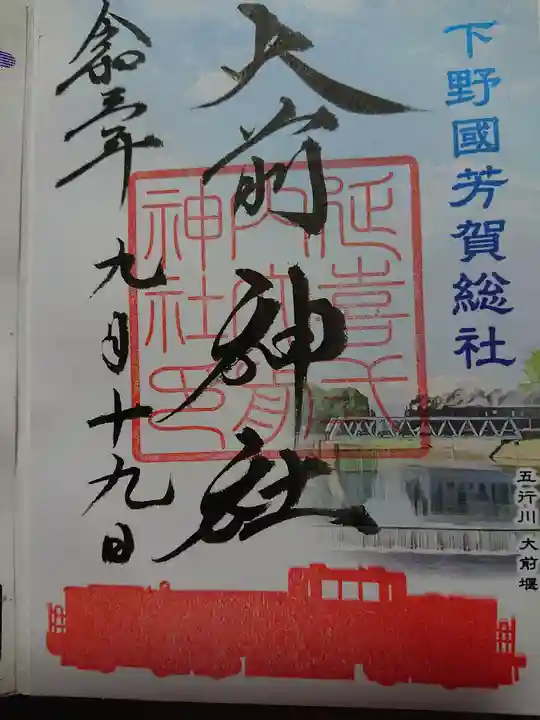 下野國芳賀総社
大前神社
令和三年 九月十九日
延喜式
内大前
神社印
五行川 大前堰